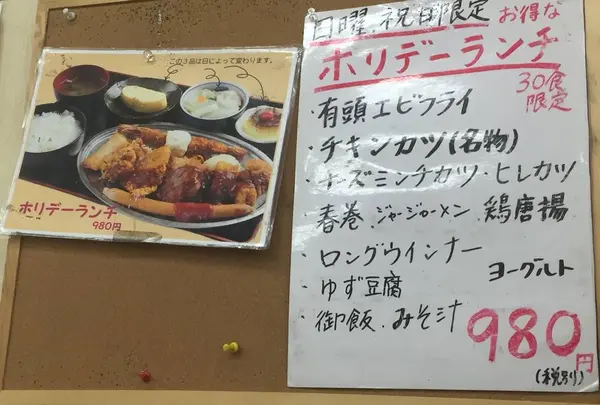 この3品は日によって変わります。
ホリデーランチ
980円
日曜.祝日限定 お得な
ホリデーランチ
30食
限定
・有頭エビフライ
・チキンカツ(名物)
・チーズミンチカツ・ヒレカツ
・春巻.ジャージャーメン.鶏唐揚
・ロングウインナー
ヨーグルト
・ゆず豆腐
・御飯.みそ汁
980円
(税別)